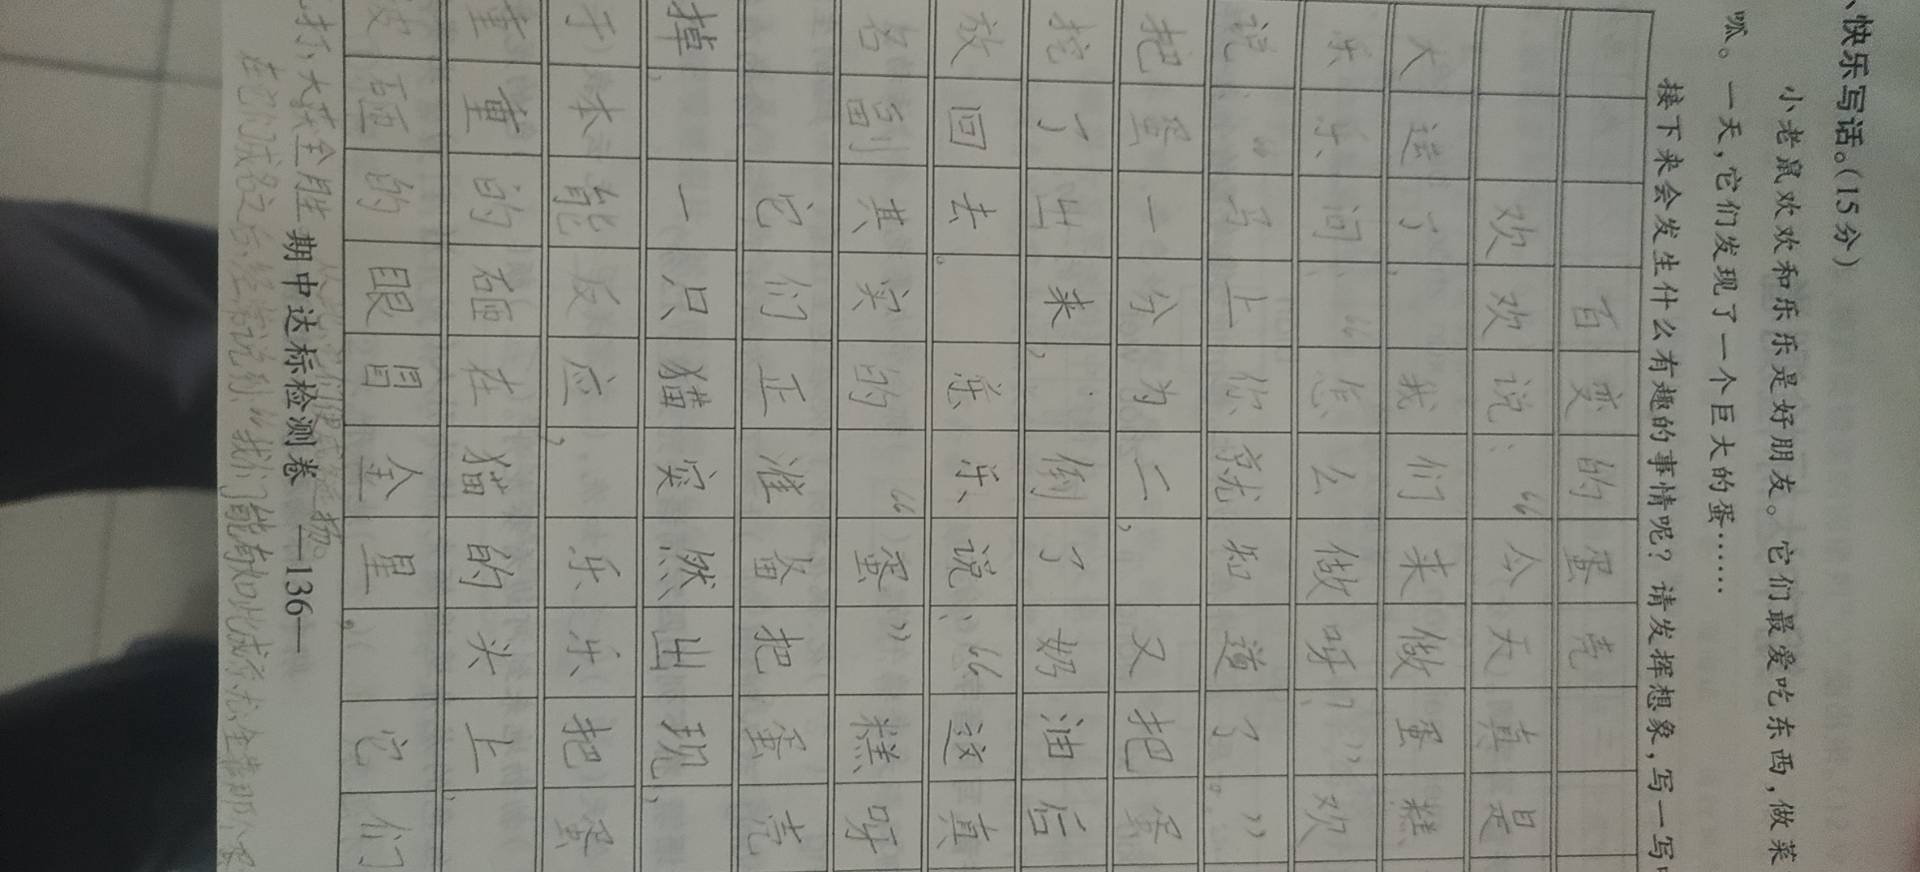 、快乐写话。(15分)
小老鼠欢欢和乐乐是好朋友。它们最爱吃东西,做菜
呱。一天,它们发现了一个巨大的蛋……
接下来会发生什么有趣的事情呢?请发挥想象,写一写
百变的蛋壳
欢欢说:“今天真是
大运了,我们来做蛋糕
乐乐问:“怎么做呀?”欢
说:“马上你就知道了。”
把蛋一分为二,又把蛋
挖了出来,倒了奶油后
放回去。乐乐说:“这真
名副其实的“蛋”糕呀
它们正准备把蛋壳
掉,一只猫突然出现,
于本能反应,乐乐把蛋
重重的砸在猫的头上,
被砸的眼冒金星。它们
打了大获全胜
期中达标检测卷 —136—